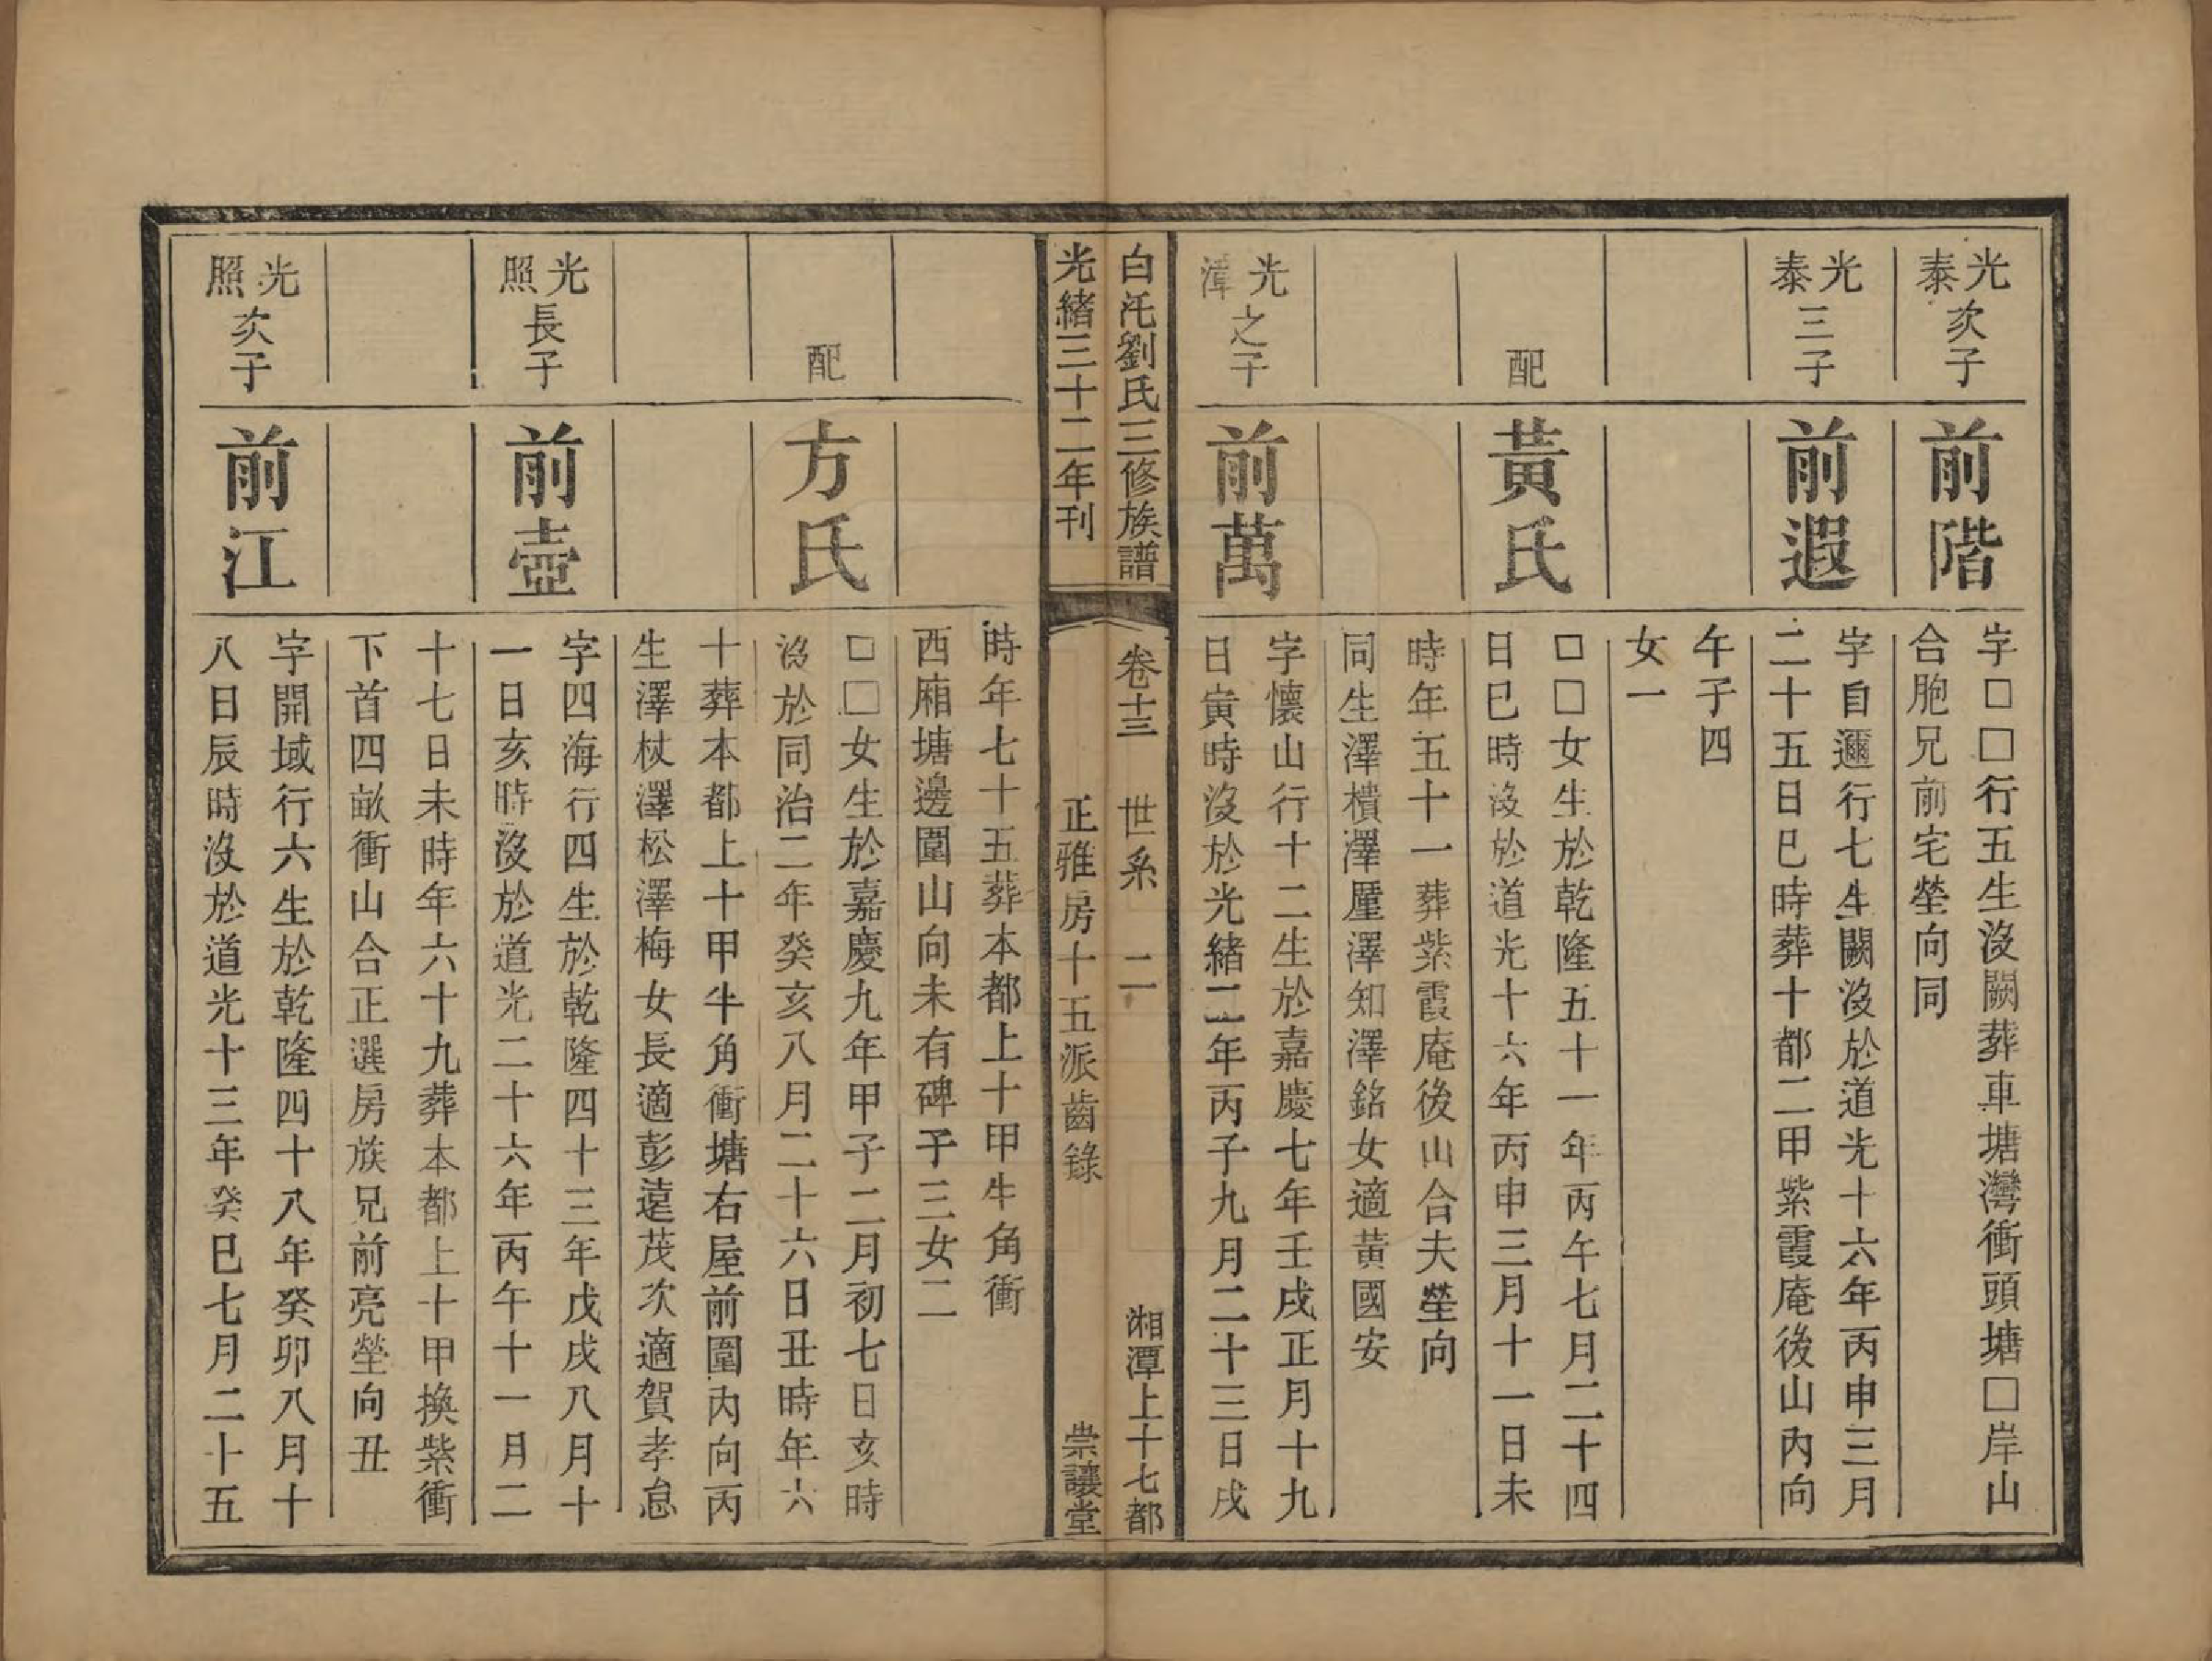 光泰次子
前階
字□□行五生沒闕葬車塘灣衝頭塘□岸山
合胞兄前宅塋向同
光泰三子
前遐
字自邇行七生闕沒於道光十六年丙申三月
二十五日巳時葬十都二甲紫霞庵後山內向
午子四
女一
配
黃氏
□□女生於乾隆五十一年丙午七月二十四
日巳時沒於道光十六年丙申三月十一日未
時年五十一葬紫霞庵後山合夫塋向
同生澤樻澤厘澤知澤銘女適黃國安
光漳之子
前萬
字懷山行十二生於嘉慶七年壬戌正月十九
日寅時沒於光緒二年丙子九月二十三日戌
白汑劉氏三修族譜
卷十三 世系 二
湘潭上十七都
光緒三十二年刊
正雅房十五派齒錄
崇讓堂
時年七十五葬本都上十甲牛角衝
西廂塘邊圍山向未有碑子三女二
配
方氏
□□女生於嘉慶九年甲子二月初七日亥時
沒於同治二年癸亥八月二十六日丑時年六
十葬本都上十甲牛角衝塘右屋前圍內向丙
生澤杖澤松澤梅女長適彭遠茂次適賀孝怠
光照長子
前壺
字四海行四生於乾隆四十三年戊戌八月十
一日亥時沒於道光二十六年丙午十一月二
十七日未時年六十九葬本都上十甲換紫衝
下首四畝衝山合正選房族兄前亮塋向丑
光照次子
前江
字開域行六生於乾隆四十八年癸卯八月十
八日辰時沒於道光十三年癸巳七月二十五